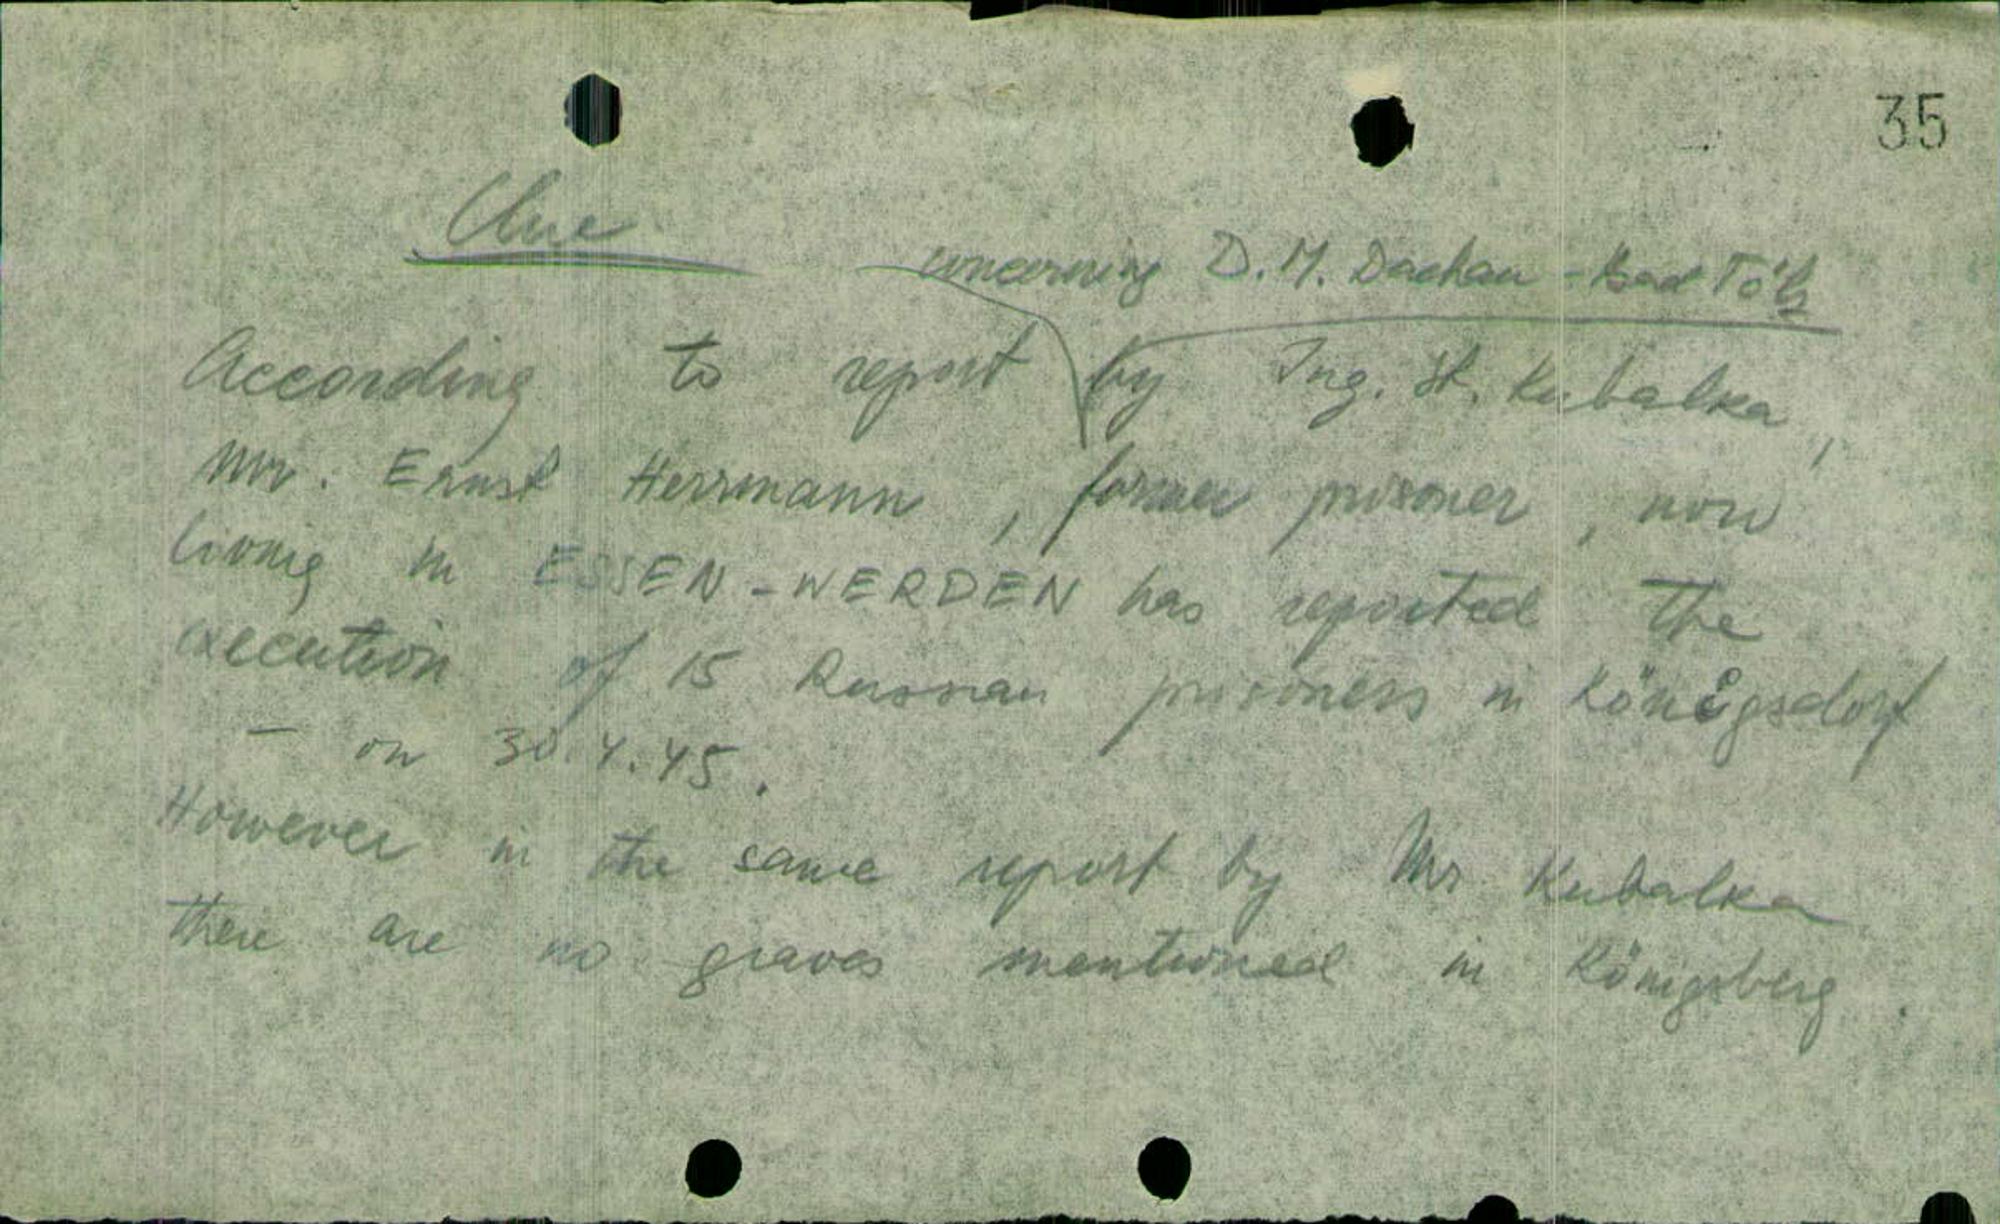 35
Clue
concerning D.M. Dachau - Bad Tölz
According to report by Ing. St. Kubalka,
Mr. Ernst Herrmann, former prisoner, now
living in ESSEN-WERDEN has reported the
execution of 15 Russian prisoners in Königsdorf
- on 30.4.45.
However in the same report by Mr Kubalka
there are no graves mentioned in Königsberg.